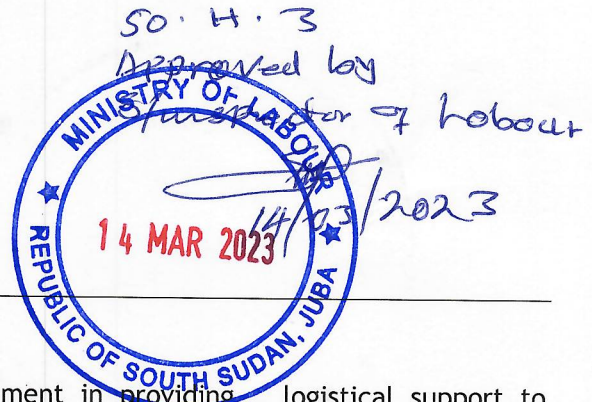 SO. H. 3
Approved by
S/Inspector of Labour
14/03/2023
MINISTRY OF LABOUR
14 MAR 2023
REPUBLIC OF SOUTH SUDAN, JUBA
ment in providing logistical support to